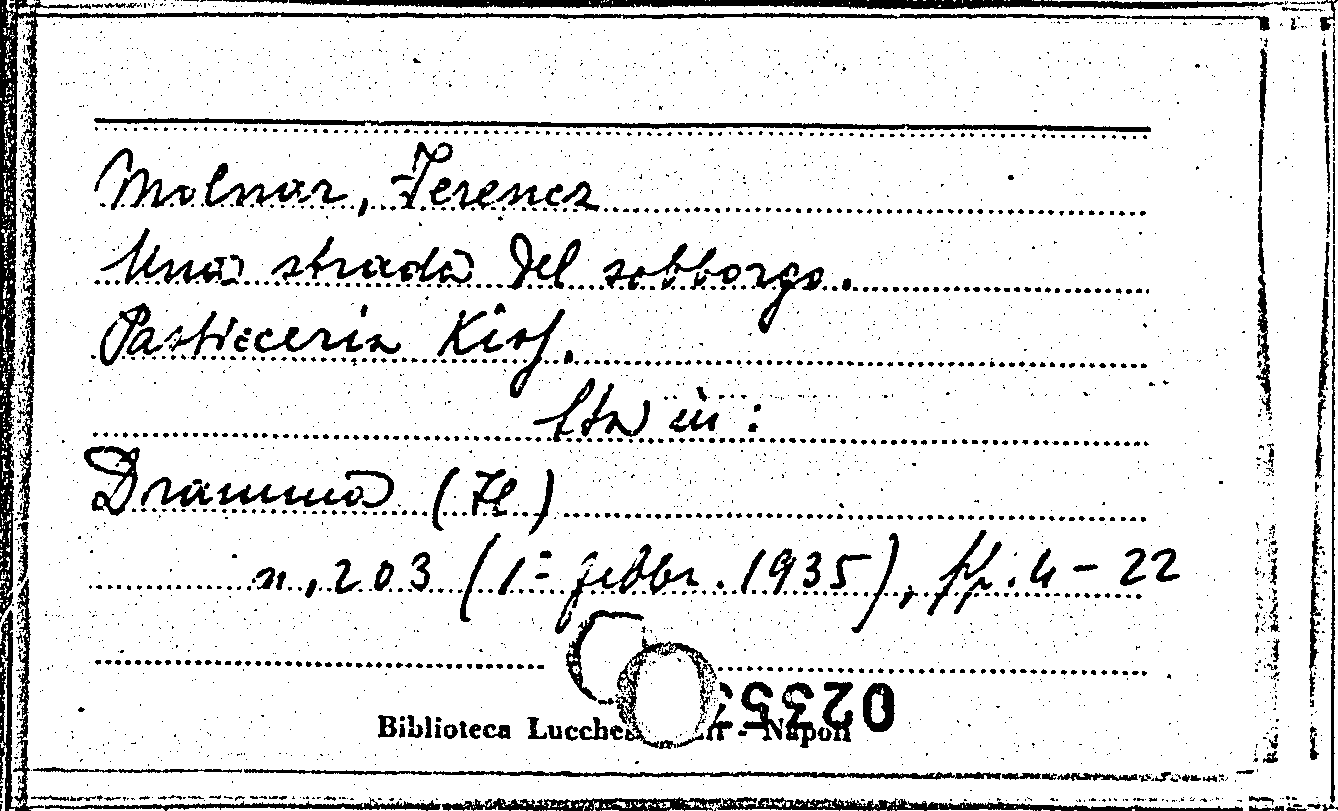 Molnar, Ferencz
Una strada del sobborgo.
Pasticceria Kiss.
Sta in:
Dramma (Il)
n. 203 (1° febbr. 1935), pp. 4-22
Biblioteca Lucches - Napoli